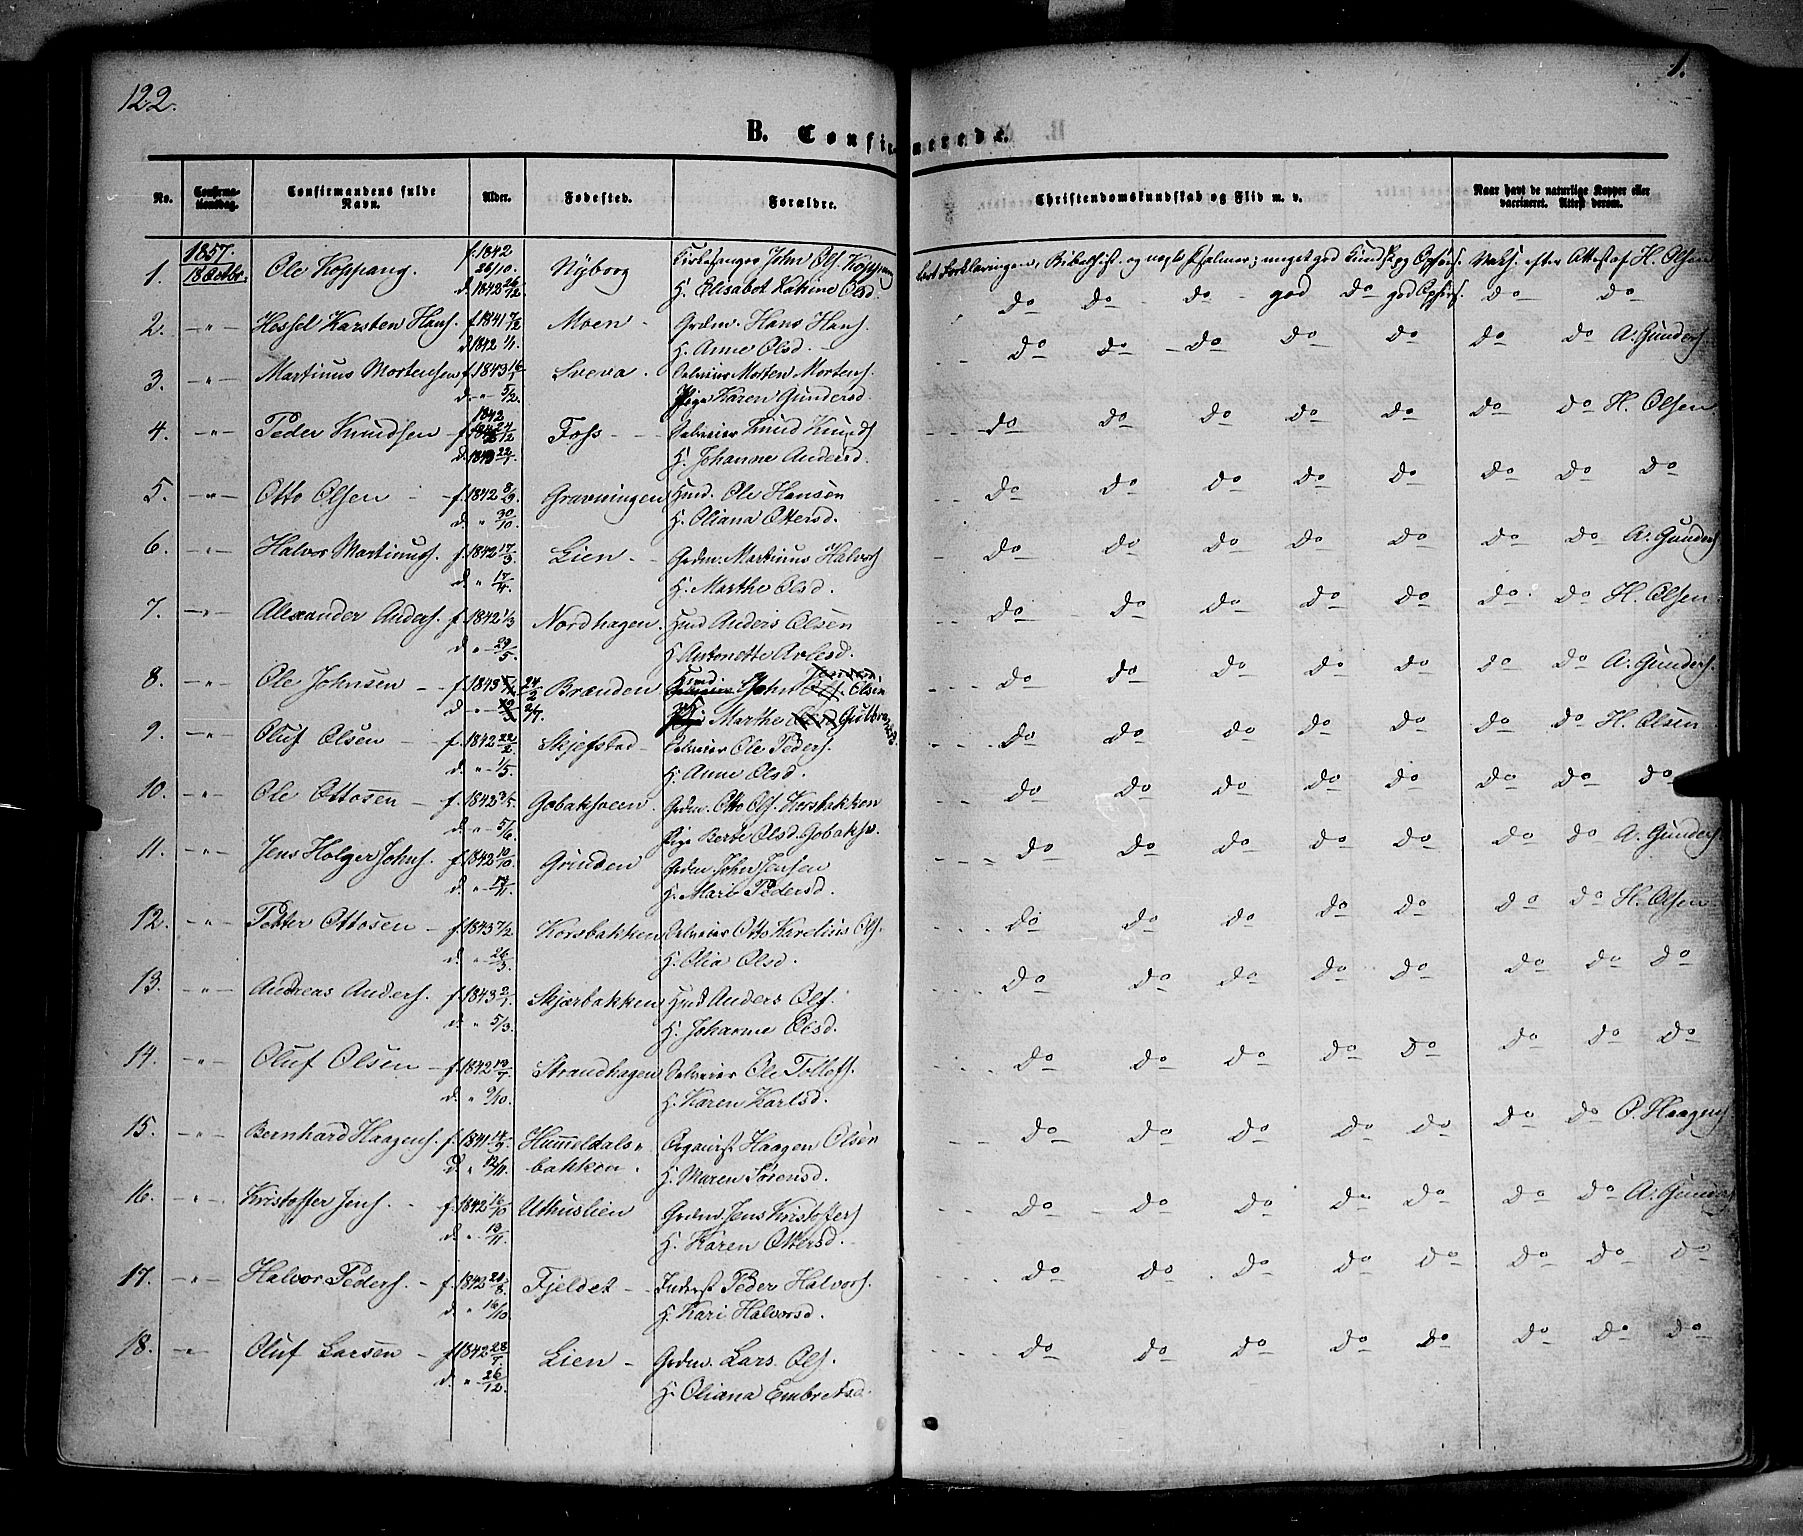 122.
1.
B. Confirmerede.
No.
Confirmationsdag.
Confirmandens fulde Navn.
Alder.
Fødested.
Forældre.
Christendomskundskab og Flid m. v.
Naar havt de naturlige Kopper eller vaccineret. Attest derom.
1857.
1. 18 Octbr. Ole Koppang. f. 1842 26/10. Nyborg Kirkesanger John Ols. Koppang
d. 1842 26/12. H. Elisabet Katrine Olsd.
lært Forklaringen, Bibelhist. og nogle Psalmer; meget god Kundsk. og Opførs. Vaks. efter Attest af H. Olsen
2. -"- Hessel Karsten Hans. f. 1841 7/12 Moen - Grdm. Hans Hans.
d. 1842 1/1. H. Anne Olsd.
do do do god do god Opførs. do do
3. -"- Martinus Mortensen f. 1843 16/1 Sveva. Selveier Morten Mortens.
d. -"- 5/2. Pige Karen Gundersd.
do do do do do do do A. Gunders.
4. -"- Peder Knudsen f. 1842 24/12 Foss - - Selveier Knud Knuds
d. 1843 22/1. H. Johanne Andersd.
do do do do do do do H. Olsen
5. -"- Otto Olsen - f. 1842 8/9 Gravningen Husd. Ole Hansen
d. " 30/10. H. Oliana Ottersd.
do do do do do do do do
6. -"- Halvor Martinus. f. 1842 17/3 Lien - Grdm. Martinus Halvors
d. " 17/4. H. Marthe Olsd.
do do do do do do do A. Gunders
7. -"- Alexander Anders. f. 1842 1/3 Nordhagen. Husd Anders Olsen
d. -"- 29/5. H. Antonette Arlesd.
do do do do do do do H. Olsen
8. -"- Ole Johnsen - f. 1843 24/2 Brænden Husd John Olsen
d. -"- 2/7. H. Marthe Gulbrandsd.
do do do do do do do A. Gunders.
9. -"- Oluf Olsen - f. 1842 22/2. Skjefstad - Selveier Ole Peders.
d. -"- 1/5. H. Anne Olsd.
do do do do do do do H. Olsen
10. -"- Ole Ottosen - f. 1842 3/5. Gobakhoeen Grdm. Otto Ols. Korsbakken
d. -"- 5/6. Pige Berte Olsd. Gobakh.
do do do do do do do do
11. -"- Jens Holger Johns. f. 1842 10/10. Grinden Grdm John Jensen
d. -"- H. Mari Pedersd.
do do do do do do do A. Gunders.
12. -"- Petter Ottosen - f. 1843 7/2 Korsbakken Selveier Otto Karelius Ols.
d. -"- 26/3. H. Olia Olsd.
do do do do do do do H. Olsen
13. -"- Andreas Anders. f. 1843 2/1. Skjærbakken Husd Anders Ols.
d. " 5/3. H. Johanne Olsd.
do do do do do do do do
14. -"- Oluf Olsen - f. 1842 12/7 Strandhagen Selveier Ole Tollefs.
d. " 9/10. H. Karen Karlsd.
do do do do do do do do
15. -"- Bernhard Haagens. f. 1841 14/9. Hummeldals- Organist Haagen Olsen
d. " 14/11. bakken. H. Maren Sørensd.
do do do do do do do O. Haagens
16. -"- Kristoffer Jens. - f. 1842 16/10 Uthuslien Grdm Jens Kristoffers
d. -"- 13/11. H. Karen Ottersd.
do do do do do do do A. Gunders
17. -"- Halvor Peders. - f. 1842 28/8. Fjeldet - Inderst Peder Halvors.
d. " 16/10. H. Kari Halvorsd.
do do do do do do do do
18. -"- Oluf Larsen - f. 1842 28/7. Lien - Grdm. Lars Ols.
d. " 26/12. H. Oliana Embretsd.
do do do do do do do do